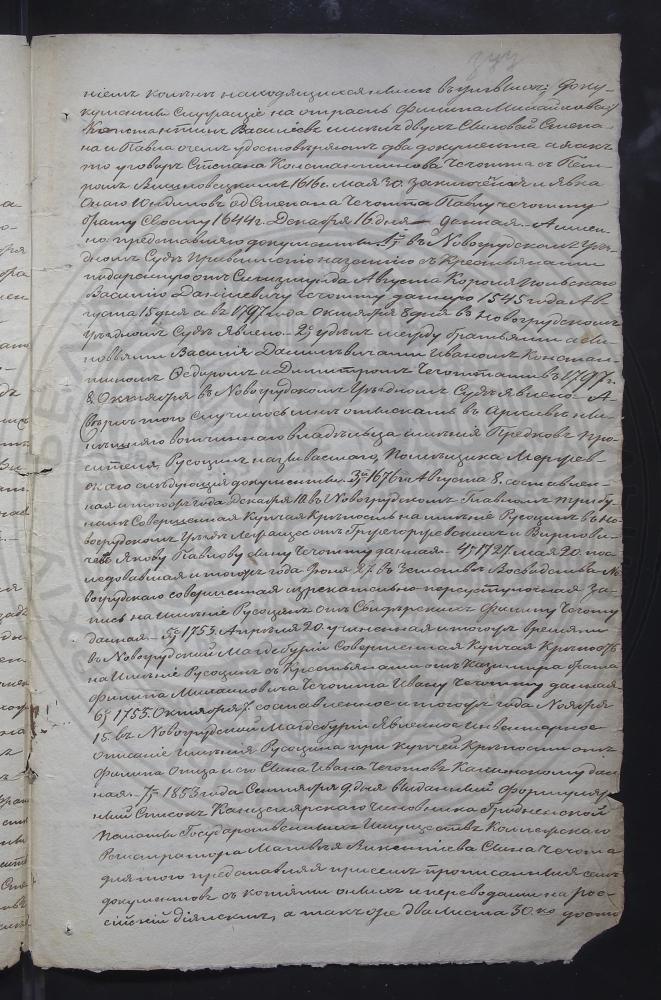 ніемъ коимъ находящихся нынѣ въ уѣздныхъ; доку-
кументы служащіе на отрасль Филипа Михайлова
Константинъ Василіевъ имѣлъ двухъ сыновей Степа-
на и Павла о чемъ удостовѣряютъ два документа а какъ
то уговоръ Степана Константинова Чечотта съ Пет-
ромъ 1616 г. мая 30. заключенная и явка
отъ Степана Чечотта Павлу Чечотту
брату своему 1644 г. Декабря 16 дня данная. А имен-
но представляю документы 1) въ Новогрудскомъ Уѣз-
дномъ Судѣ Привиллегію на землю съ Крестьянами
подаренную отъ Сигизмунда Августа Короля польскаго
Василію Даніиевичу Чечотту данную 1545 года Ав-
густа 15 дня а въ 1797 года Октября 8 дня въ Новогрудскомъ
Уѣздномъ Судѣ явлено. 2) удѣлъ между братьями а сы-
новьями Василія Даниилевичами Иваномъ Констан-
тиномъ Федоромъ и Димитромъ Чечоттами въ 1797 г.
8 Октября въ Новогрудскомъ Уѣздномъ Судѣ явлено. А
сверхъ того случилось мнѣ отыскать въ Архивѣ ны-
нѣшняго вотчиннаго владѣльца имѣнія Предковъ про-
сителя, Русоцинъ называемаго, Помѣщика
слѣдующія документы. 3) 1676 г. Августа 8. составлен-
ная и тогожъ года Декабря 10 въ Новогрудскомъ Главномъ Трибу-
налѣ Совершенная Купчая Крѣпость на имѣніе Русоцинъ въ Но-
вогрудскомъ Уѣздѣ лежащее отъ
Якову Павлову сыну Чечотту данная. 4) 1727 мая 20. пос-
ледовавшая и тогожъ года Іюня въ Земствѣ Воеводства Но-
вогрудскаго совершенная переуступочная за-
пись на имѣніе Русоцинъ отъ Филипу Чечоту
данная. 5) 1753 Апрѣля 20. учиненная и тогожъ времени
въ Новогрудской Магдебургіи Совершенная Купчая Крѣпость
на Имѣніе Русоцинъ съ Крестьянами отъ Казимира брата
Филипа Михайловича Чечотта Ивану Чечотту данная.
6) 1755. Октября 7. составленное и тогожъ года Ноября
15. въ Новогрудской Магдебургіи явленное Инвентарное
описаніе имѣнія Русоцина при купчей Крѣпости отъ
Филипа отца и его сына Ивана Чечотовъ Калинскому дан-
ная. 7) 1853 года Сентября 9 дня выданный Формуляр-
ный Списокъ Канцелярскаго чиновника Гродненской
Палаты Государственныхъ Имуществъ Коллежскаго
Регистратора Матвѣя Викентіева сына Чечота
для того представляя при семъ прописанныя семь
документовъ съ копіями оныхъ и переводами на рос-
сійскій діялектъ, а также два листа 30. ко. досто